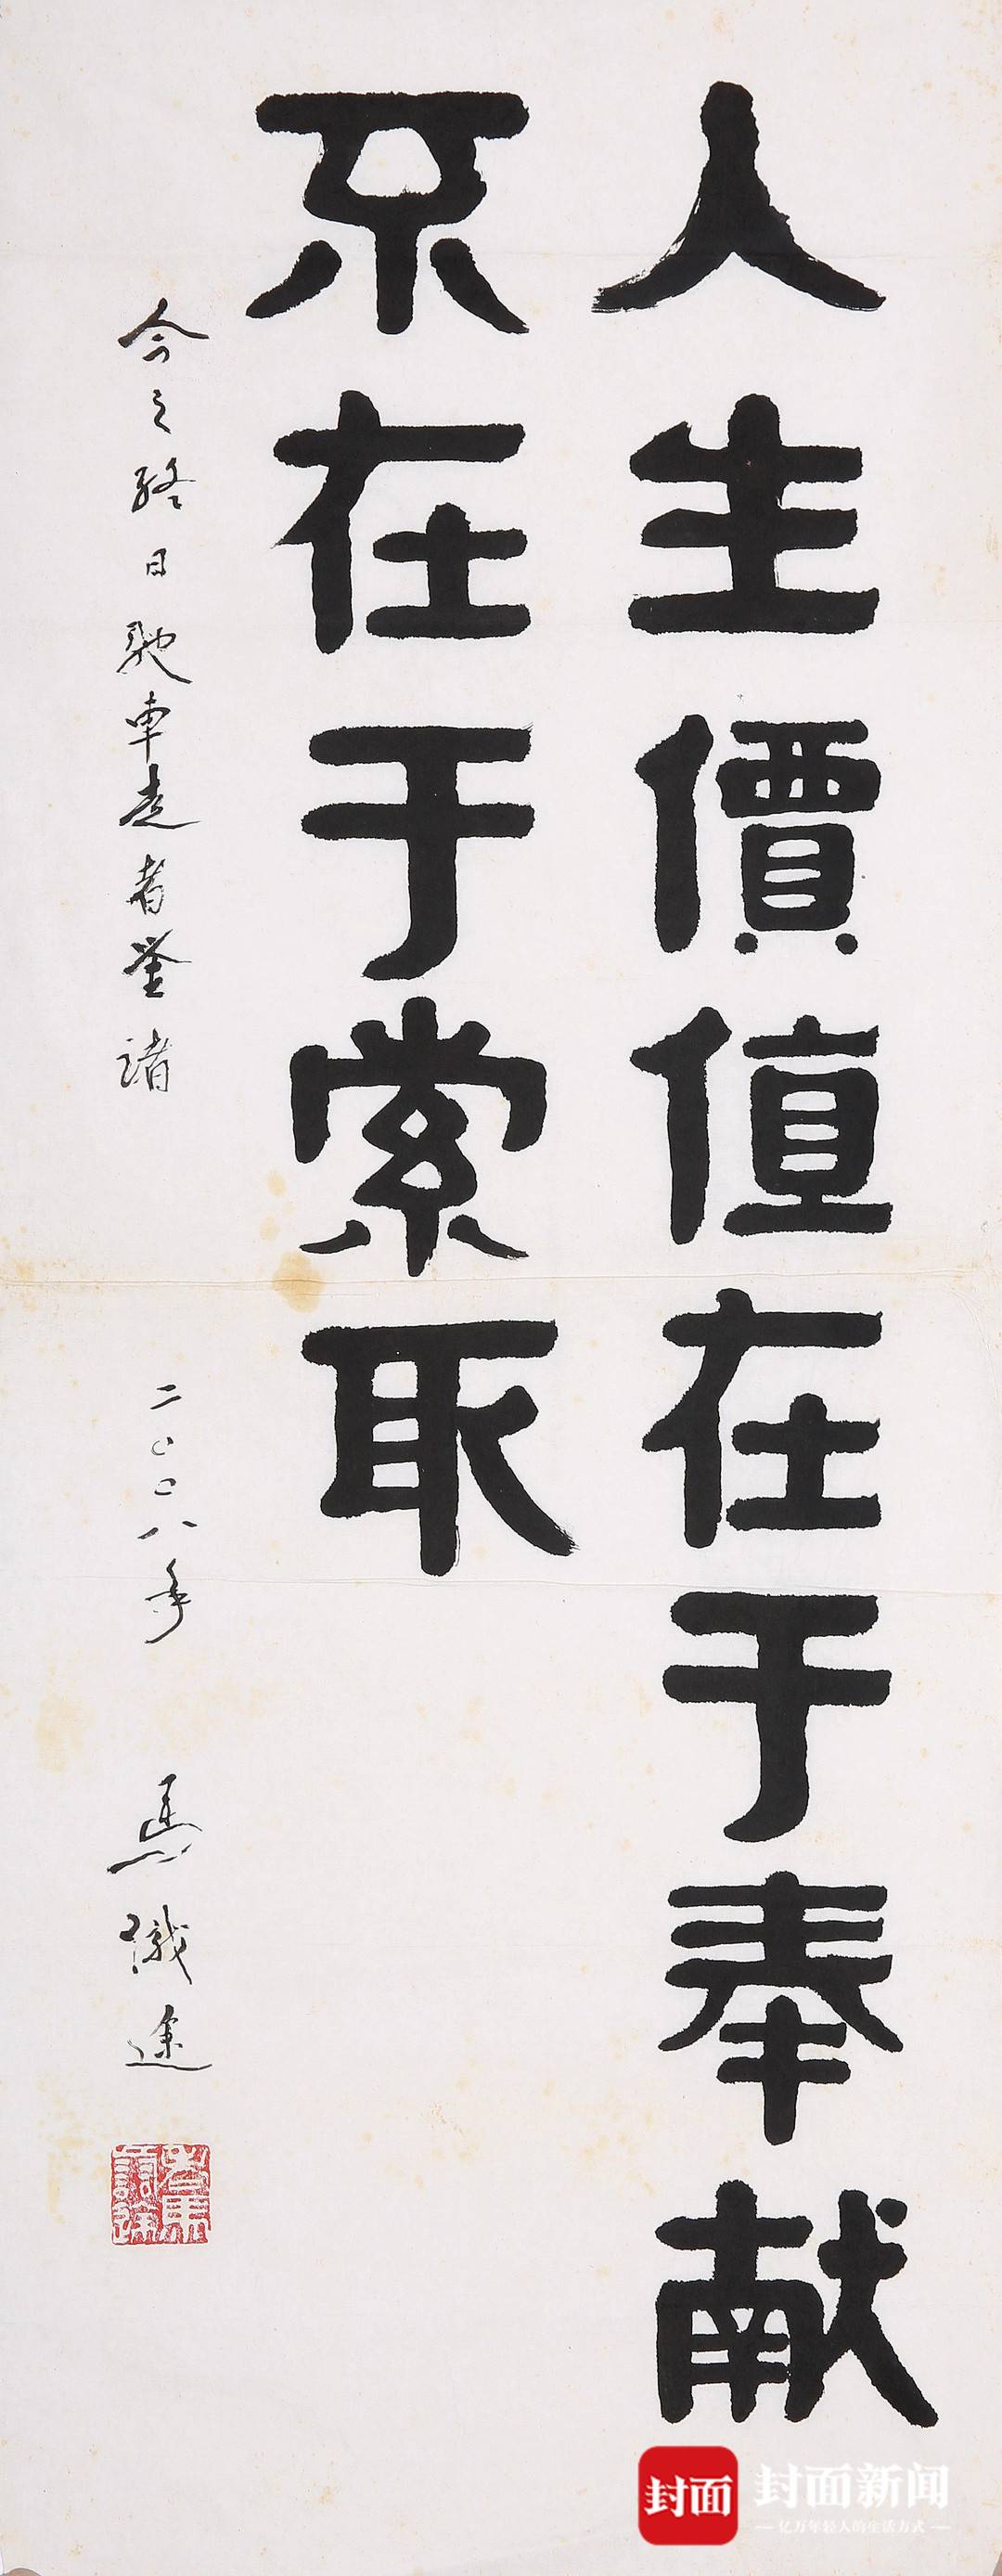 人生價值在于奉献
不在于索取
今之終日馳車走者鉴諸
二〇〇八年
馬識途
封面
封面新闻
亿万年轻人的生活方式